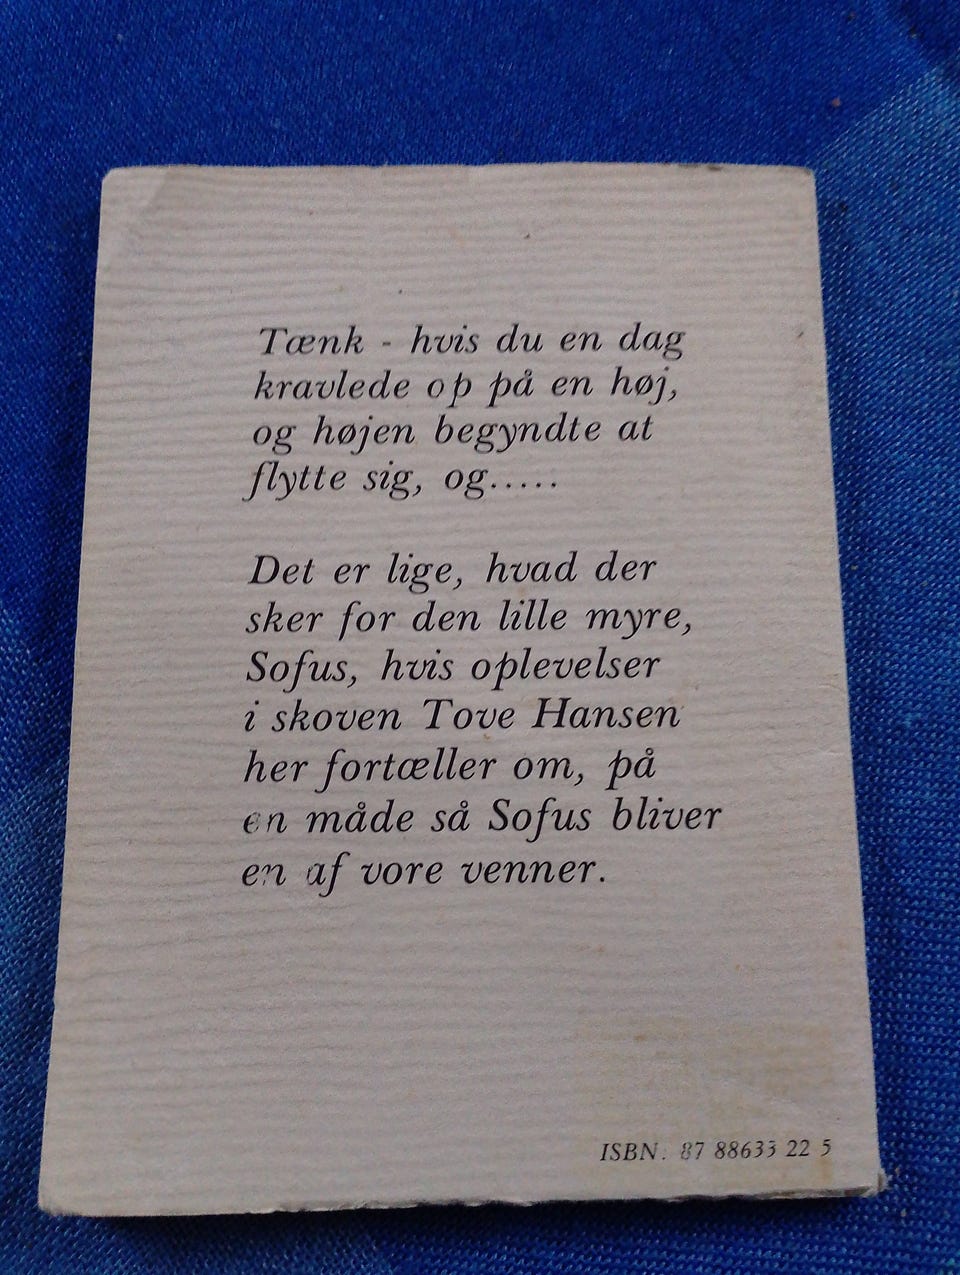 Tænk - hvis du en dag
kravlede op på en høj,
og højen begyndte at
flytte sig, og.....
Det er lige, hvad der
sker for den lille myre,
Sofus, hvis oplevelser
i skoven Tove Hansen
her fortæller om, på
en måde så Sofus bliver
en af vore venner.
ISBN. 87 88633 22 5